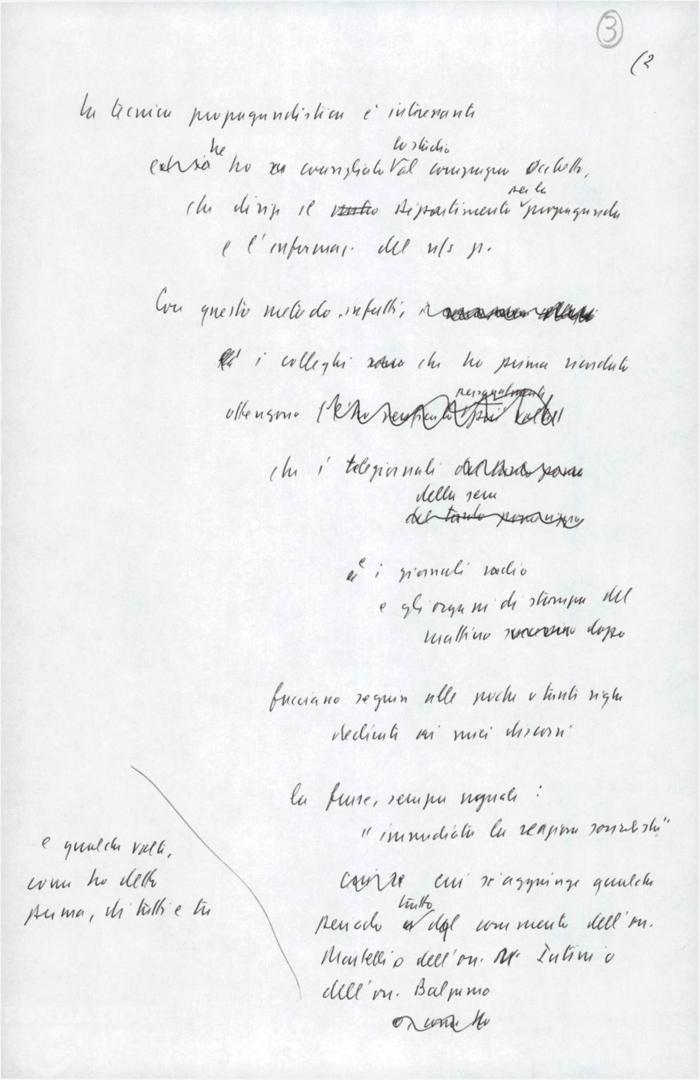 3
(2
La tecnica propagandistica è interessante
he lo studio
ho consigliato al compagno Occhetto,
per la
che dirige il Dipartimento propaganda
e l'informaz. del n/s p.
Con questo metodo, infatti,
i colleghi che ho prima ricordato
ottengono
personalmente
che i telegiornali
della sera
e i giornali radio
e gli organi di stampa del
mattino dopo
facciano seguire alle poche o tante righe
dedicate ai miei discorsi
la frase, sempre uguale:
"immediata la reazione socialista"
e qualche volta,
come ho detto
prima, di tutti e tre
cui si aggiunge qualche
tutto
periodo del commento dell'on.
Martelli o dell'on. Intini o
dell'on. Balzamo
FONDAZIONE